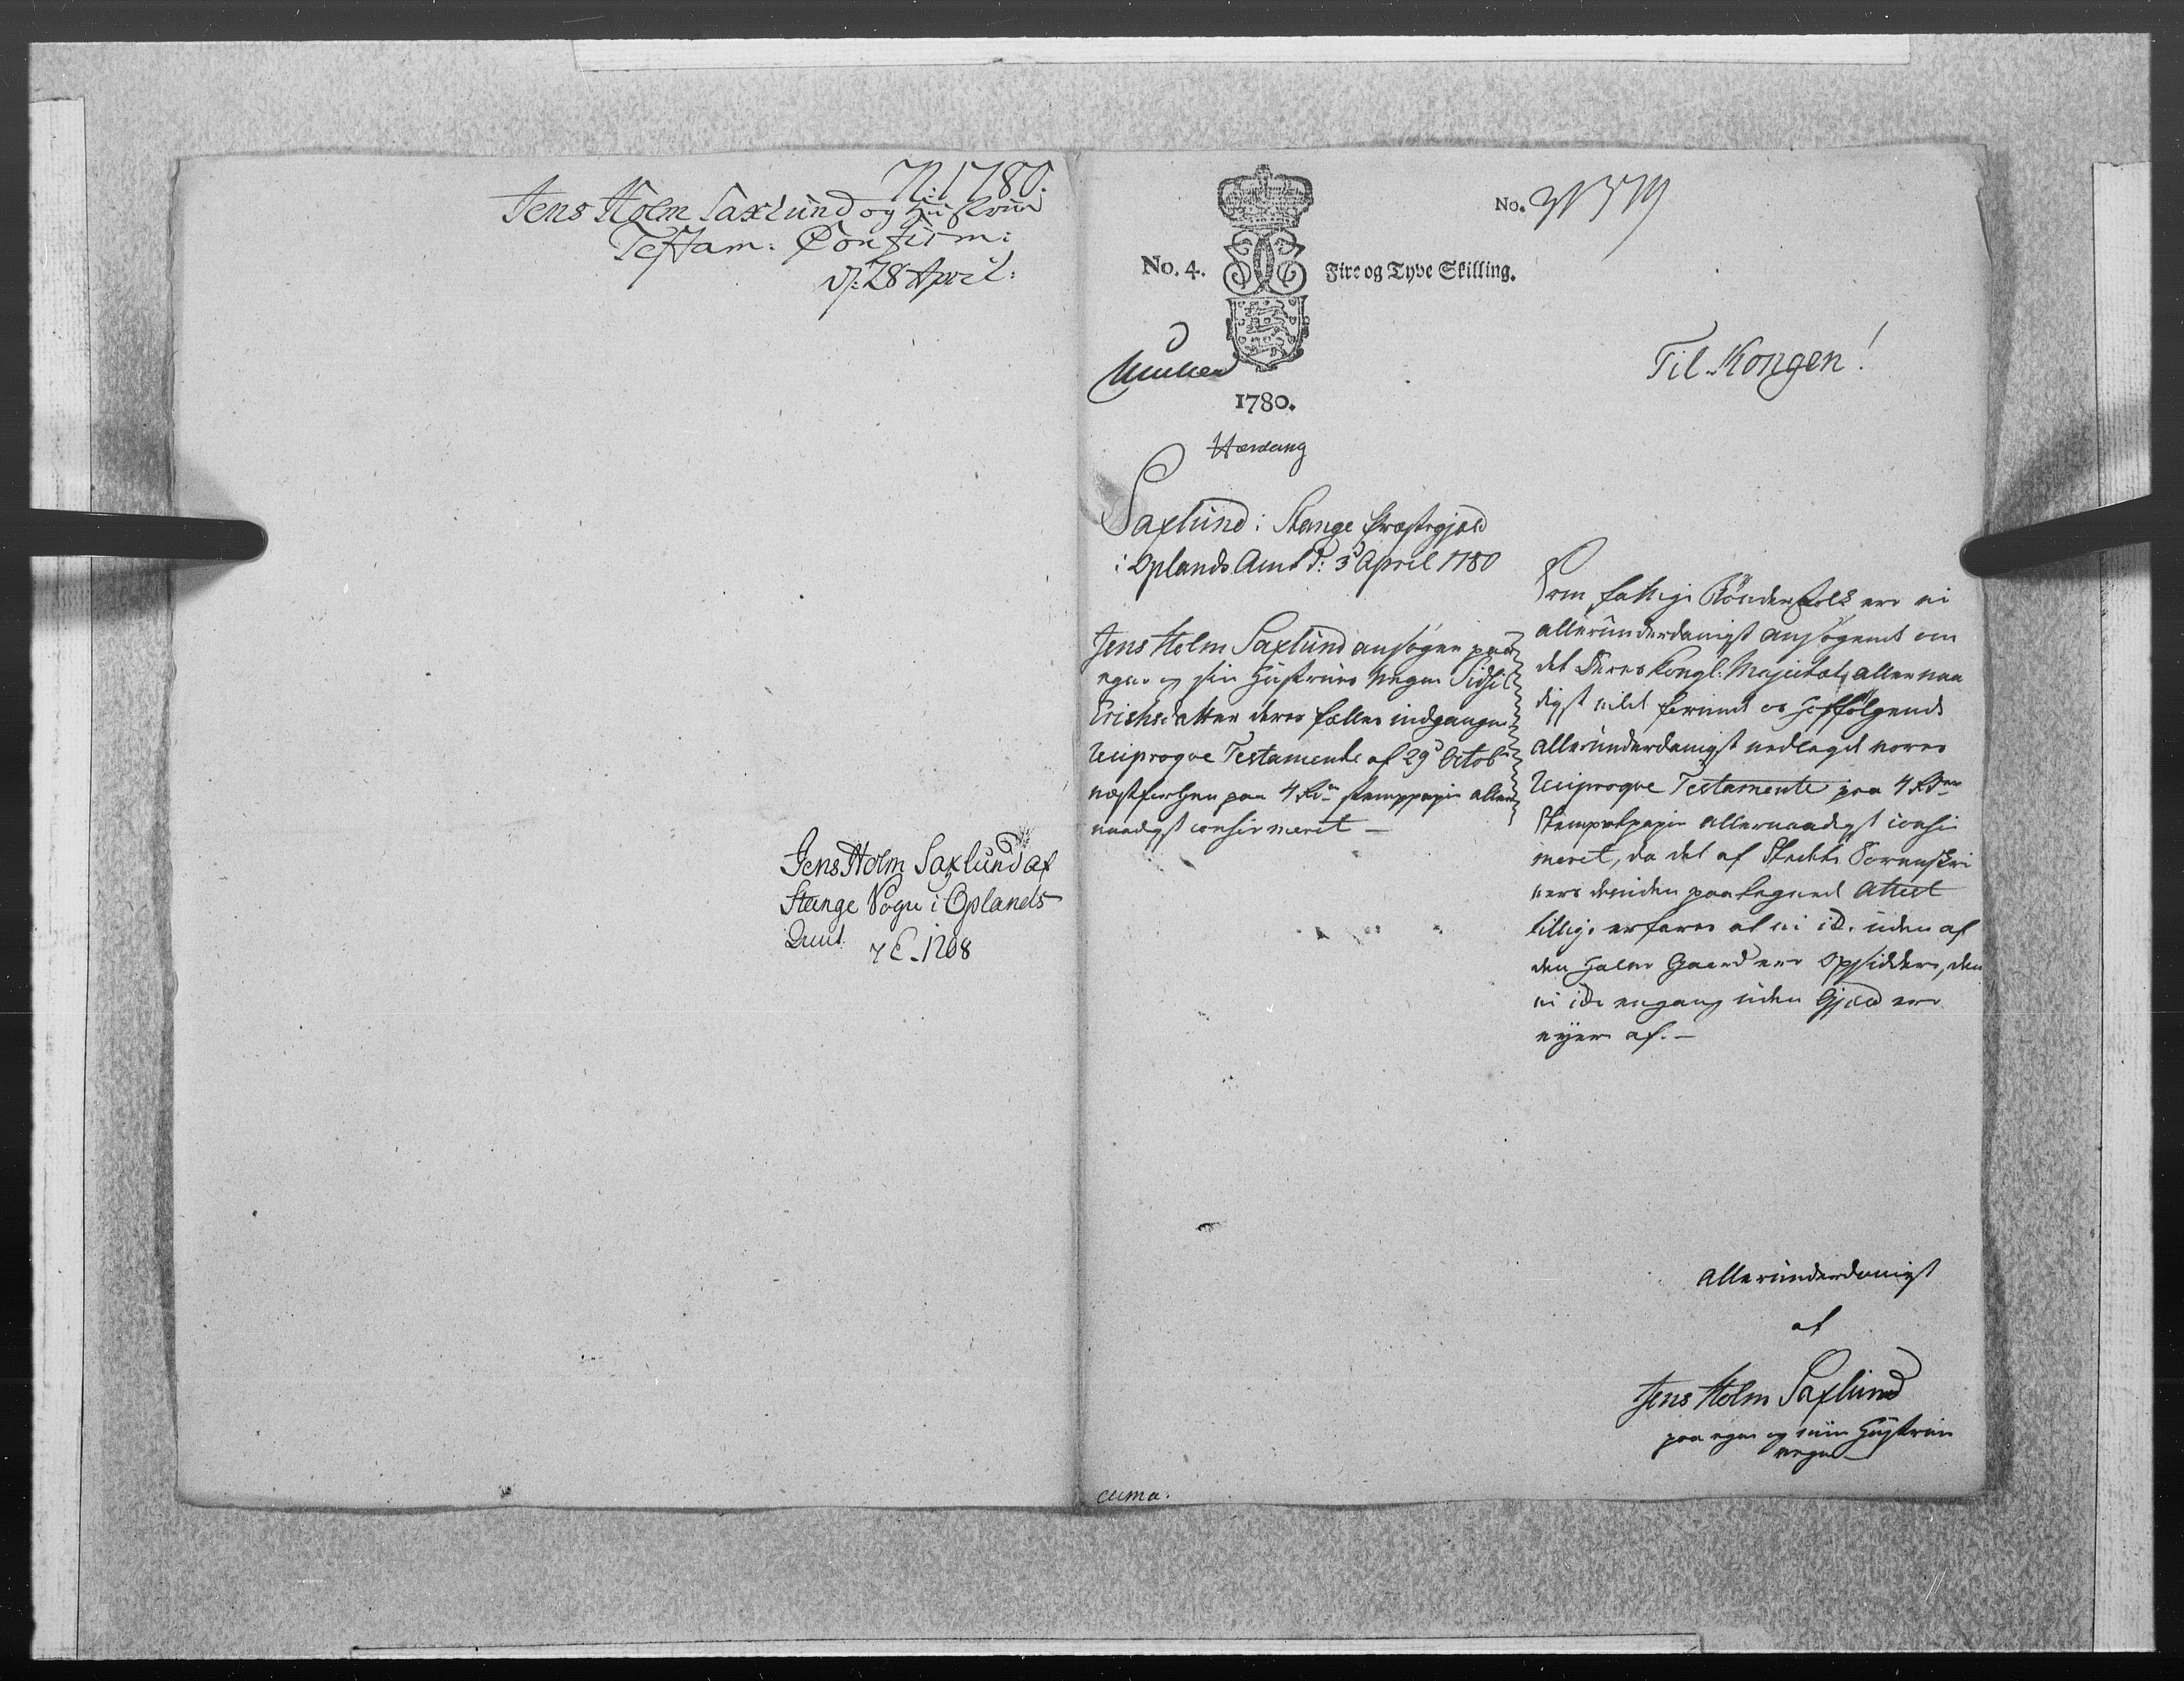 N: 1780.
Jens Holm Saxlund og Hustrue
Testam: Confirm:
D: 28 April:
Jens Holm Saxlund af
Stange Sogn i Oplands
Amt
7 C. 1208
No.
No. 4. Fire og Tyve Skilling.
1780.
Til Kongen!
Saxlund i Stange Præstegjeld
i Oplands Amt d: 3 April 1780
Jens Holm Saxlund ansøger paa
egne og sin Hustrues Vegne Sidsil
Erichsdatter deres fælles indgangne
Reciproqve Testamente af 29 Octob
næstforhen paa 4 Rd stemppapir aller
naadigst confirmeret -
Som fattige Bønderfolk ere vi
allerunderdanigst ansøgende om
det Deres Kongl: Majestæt allernaa
digst vilde forunde os hosfølgende
allerunderdanigst vedlagde vores
Reciproqve Testamente paa 4 Rd
Stempelpapir allernaadigst confir
meret, da det af Stedets Sorenskri
vers derinden paategnede Attest
tillige erfares at vi ick uden af
den halve Gaard ere Opsiddere, den
vi icke engang uden Gjeld ere
ejere af. -
Allerunderdanigst
af
Jens Holm Saxlund
paa egne og min Hustrues
Vegne